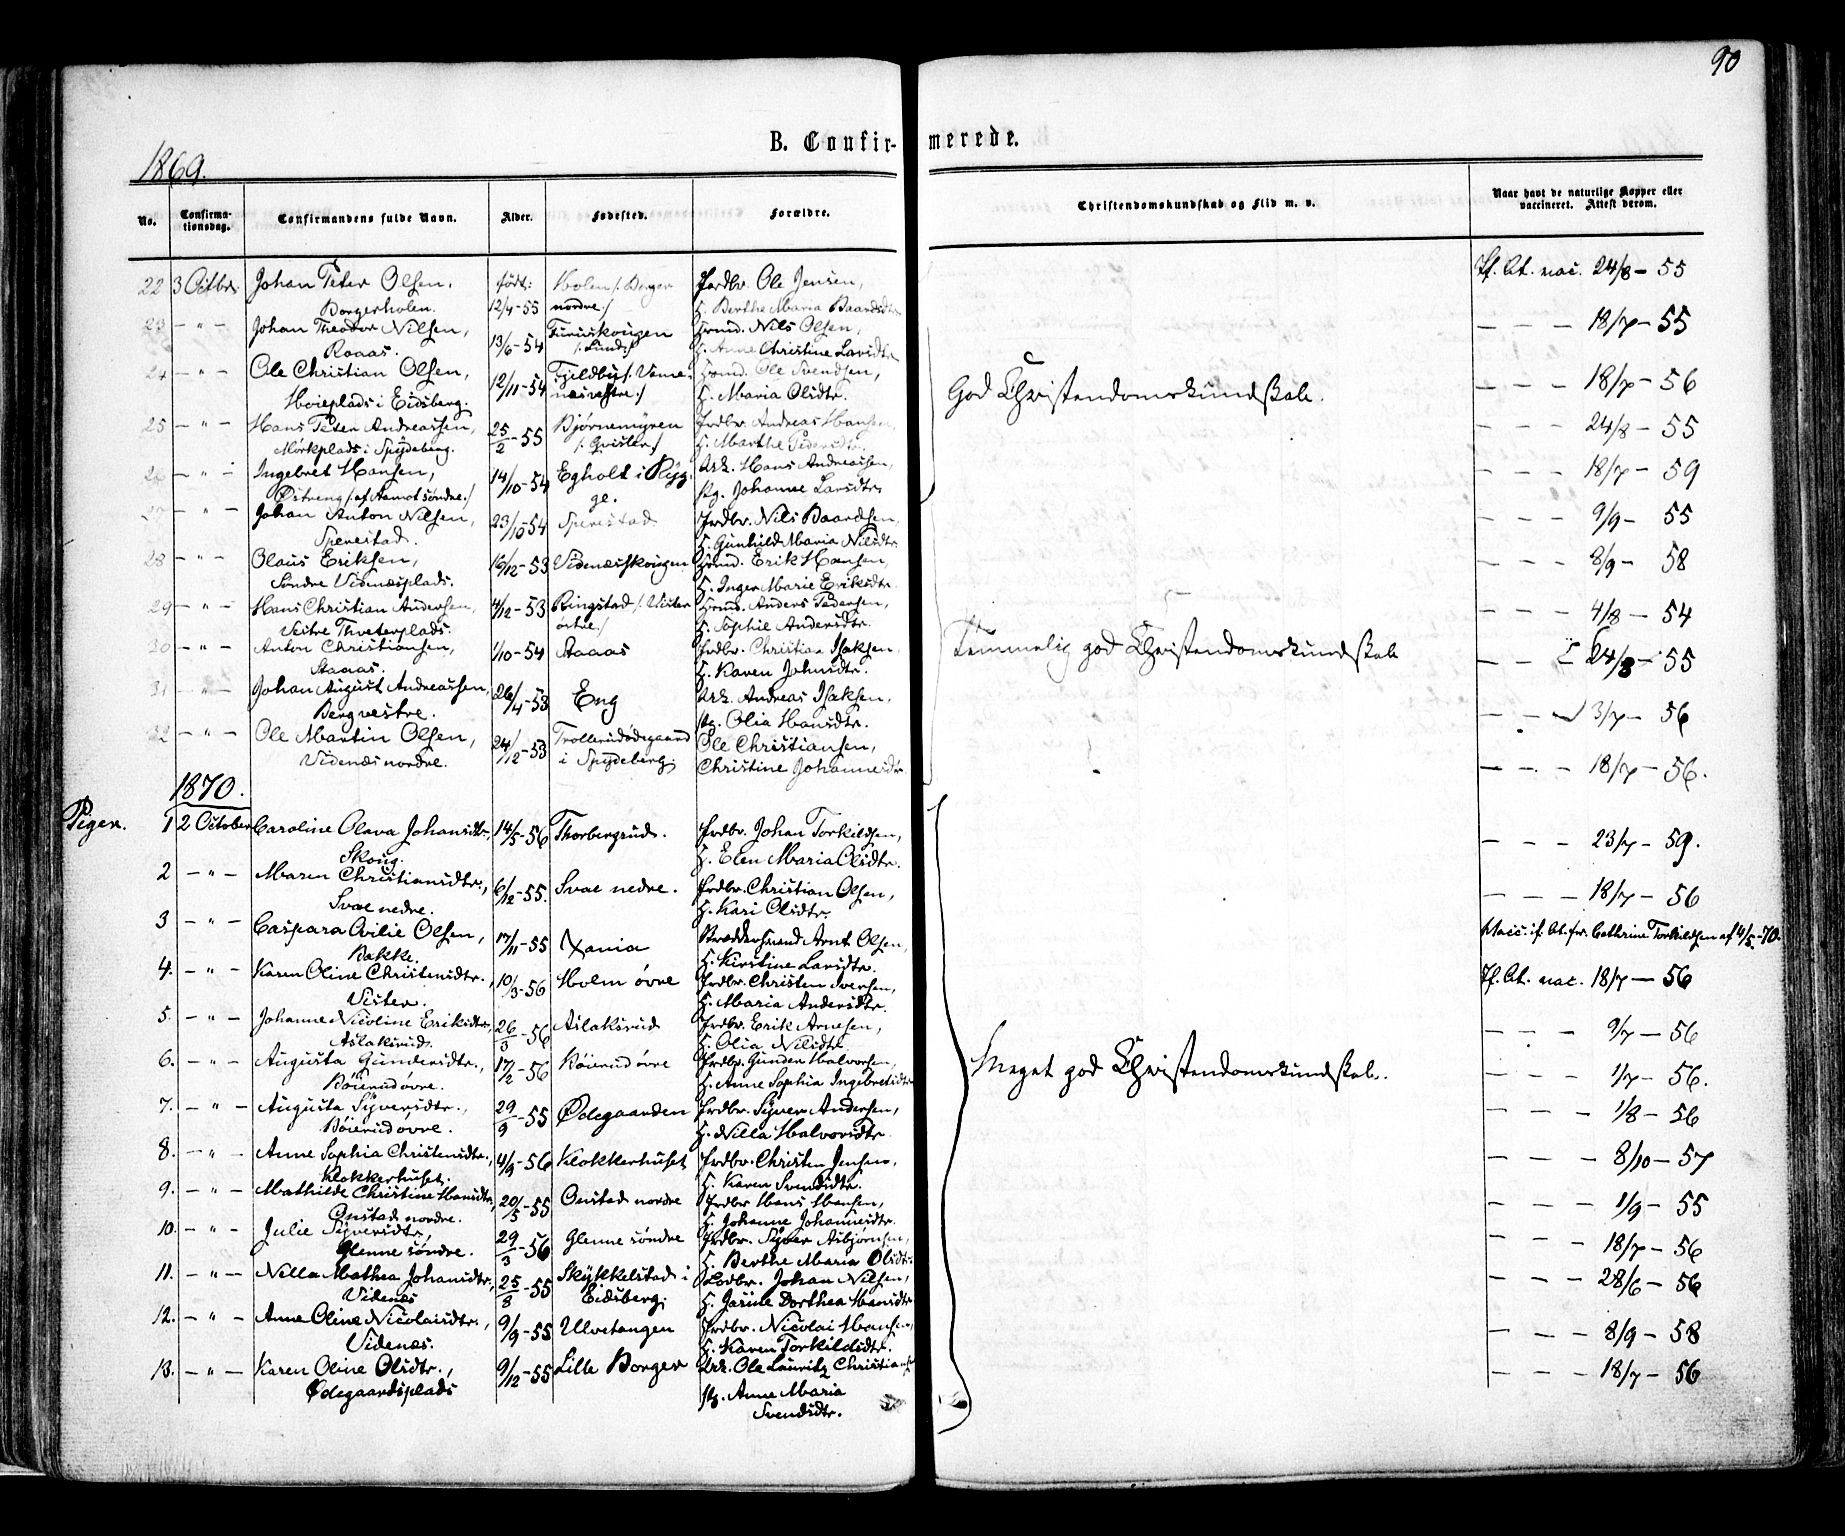 90
B. Confirmerede.
1869.
No. Confirmationsdag. Confirmandens fulde Navn. Alder. Fødested. Forældre. Christendomskundskab og Flid m. v. Naar havt de naturlige Kopper eller vaccineret. Attest derom.
22 3 Octbr Johan Peter Olsen, født: Holen /: Borger Grdbr. Ole Jensen, If. At. vac. 24/8 - 55
Borgerholen. 12/4-55 nordre :/ H. Berthe Maria Baardsdtr
23 - " - Johan Theodor Nilsen, 13/6-54 Furuskougen Hrmd. Nils Olsen, - - - 18/7 - 55
Roaas. /: Lund :/ H. Anne Christine Larsdtr
24 - " - Ole Christian Olsen, 12/11-54 Fjeldby /: Vame- Hrmd. Ole Svendsen, - - - 18/7 - 56
Hoieplads i Eidsberg. næs vestre :/ H. Maria Olsdtr.
God Christendomskundskab.
25 - " - Hans Peter Andreassen, 25/2-55 Bjørnemyren Grdbr. Andreas Hansen, - - - 24/8 - 55
Mørkplads i Spydeberg. /: Gvisler :/ H. Marthe Pedersdtr.
26 - " - Ingebret Hansen, 14/10-54 Egholt i Ryg- Ark. Hans Andreassen, - - - 18/7 - 59
Østreng /: af Aamot søndre :/ ge. pg. Johanne Larsdtr
27 - " - Johan Anton Nilsen, 23/10-54 Sperestad Grdbr. Nils Baardsen, - - - 9/9 - 55
Sperestad. H. Gunhild Maria Nilsdtr.
28 - " - Olaus Eriksen, 16/12-53 Videnæsskougen Hrmd. Erik Hansen, - - - 8/9 - 58
Søndre Videnæsplads. H. Inger Marie Eriksdtr
29 - " - Hans Christian Andersen, 4/12-53 Ringstad /: Vister Hrmd. Anders Pedersen, - - - 4/8 - 54
Vestre Thveterplads. østre :/ H. Sophie Andersdtr.
30 - " - Anton Christiansen, 1/10-54 Staaas Grdbr. Christian Isaksen, - - 24/8 - 55
Staaas. H. Karen Johnsdtr.
Temmelig god Christendomskundskab
31 - " - Johan August Andreassen, 26/4-53 Eng Ark. Andreas Isaksen, - - 3/7 - 56
Berg vestre. pg. Olia Hansdtr.
32 - " - Ole Martin Olsen, 24/12-53 Trollerudødegaard Ole Christiansen, - - - 18/7 - 56.
Videnæs nordre. i Spydeberg. Christine Johannesdtr
1870.
Piger. 1 2 October Caroline Olava Johansdtr., 14/5-56 Thorbergsrud. Grdbr. Johan Torkildsen, - - - 23/7 - 59.
Skoug. H. Elen Maria Olsdtr.
2 - " - Maren Christiansdtr., 6/12-55. Svae nedre. Grdbr. Christian Olsen, - - - 18/7 - 56
Svae nedre. H. Kari Olsdtr.
3 - " - Caspara Ovilie Olsen, 17/11-55 Xania Arnt Olsen, Vacc. if. At. fra Cathrine Torkildsen af 4/5-70.
Bakke. H. Kirstine Larsdtr.
4. - " - Karen Oline Christensdtr., 10/3-56 Holm øvre Grdbr. Christen Iversen, If. At. vac. 18/7 - 56
Vister. H. Maria Andersdtr.
5. - " - Johanne Nicoline Eriksdtr., 26/3-56 Aslaksrud Grdbr. Erik Arnesen, - - - 9/7 - 56
Aslaksrud. H. Olia Nilsdtr.
6. - " - Augusta Gundersdtr., 17/2-56 Bøierud øvre Grdbr. Gunder Halvorsen, - - - 1/7 - 56.
Bøierud øvre. H. Anne Sophia Ingebretsdtr
Meget god Christendomskundskab.
7. - " - Augusta Syversdtr., 29/9-55 Ødegaarden Grdbr. Syver Andersen, - - - 1/8 - 56
Bøierud øvre. H. Nilla Halvorsdtr
8. - " - Anne Sophia Christensdtr., 4/9-56 Klokkerhuset Grdbr. Christen Jensen, - - - 8/10 - 57
Klokkerhuset. H. Karen Svendsdtr.
9. - " - Mathilde Christine Hansdtr, 20/5-55 Onstad nordre Grdbr Hans Hansen, - - - 1/9 - 55
Onstad nordre. H. Johanne Johannesdtr.
10. - " - Julie Syversdtr, 29/3-56 Glenne søndre Grdbr. Syver Asbjørnsen, - - - 18/7 - 56
Glenne søndre. H. Berthe Maria Olsdtr.
11. - " - Nella Mathea Johansdtr, 25/8-55 Skykkelstad i Lodbr. Johan Nilsen, - - - 28/6 - 56
Videnæs Eidsberg. H. Jasine Dorthea Hansdtr
12. - " - Anne Oline Nicolaisdtr., 9/9-55 Ulvetangen Grdbr. Nicolai Hansen, - - - 8/9 - 58
Videnæs. H. Karen Torkildsdtr.
13. - " - Karen Oline Olsdtr., 9/12-55 Lille Borger Ark. Ole Lauritz Christians - - - 18/7 - 56
Ødegaardsplads pg. Anne Maria
Svendsdtr.